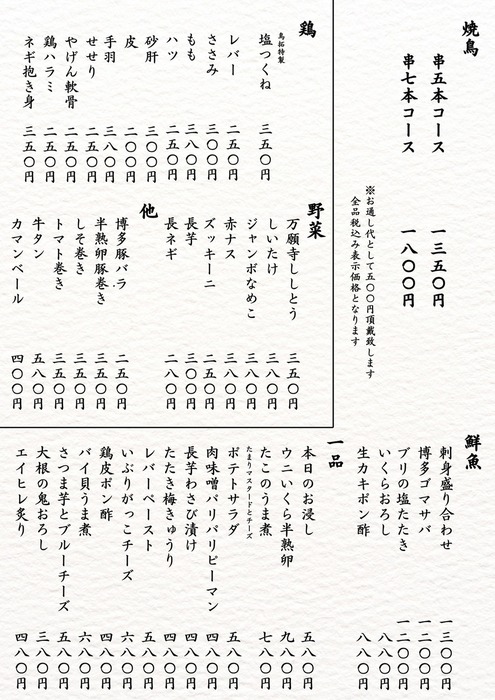 焼鳥
串五本コース 一三五〇円
串七本コース 一八〇〇円
※お通し代として五〇〇円頂戴致します
全品税込み表示価格となります
鶏
鳥拓特製
塩つくね 三五〇円
レバー 二五〇円
ささみ 三〇〇円
もも 三八〇円
ハツ 二五〇円
砂肝 三〇〇円
皮 二〇〇円
手羽 三八〇円
せせり 二五〇円
やげん軟骨 二五〇円
鶏ハラミ 二五〇円
ネギ抱き身 三五〇円
野菜
万願寺ししとう 三五〇円
しいたけ 三八〇円
ジャンボなめこ 三八〇円
赤ナス 三八〇円
ズッキーニ 二五〇円
長芋 三八〇円
長ネギ 二八〇円
他
博多豚バラ 二五〇円
半熟卵豚巻き 三五〇円
しそ巻き 三五〇円
トマト巻き 三五〇円
牛タン 五八〇円
カマンベール 四〇〇円
鮮魚
刺身盛り合わせ 一三〇〇円
博多ゴマサバ 一二〇〇円
ブリの塩たたき 一二〇〇円
いくらおろし 八八〇円
生カキポン酢 八八〇円
一品
本日のお浸し 五八〇円
ウニいくら半熟卵 九八〇円
たこのうま煮 七八〇円
たまりマスタードとチーズ
ポテトサラダ 五八〇円
肉味噌パリパリピーマン 四八〇円
長芋わさび漬け 四八〇円
たたき梅きゅうり 四八〇円
レバーペースト 五八〇円
いぶりがっこチーズ 六八〇円
鶏皮ポン酢 四八〇円
バイ貝うま煮 六八〇円
さつま芋とブルーチーズ 五八〇円
大根の鬼おろし 三八〇円
エイヒレ炙り 四八〇円